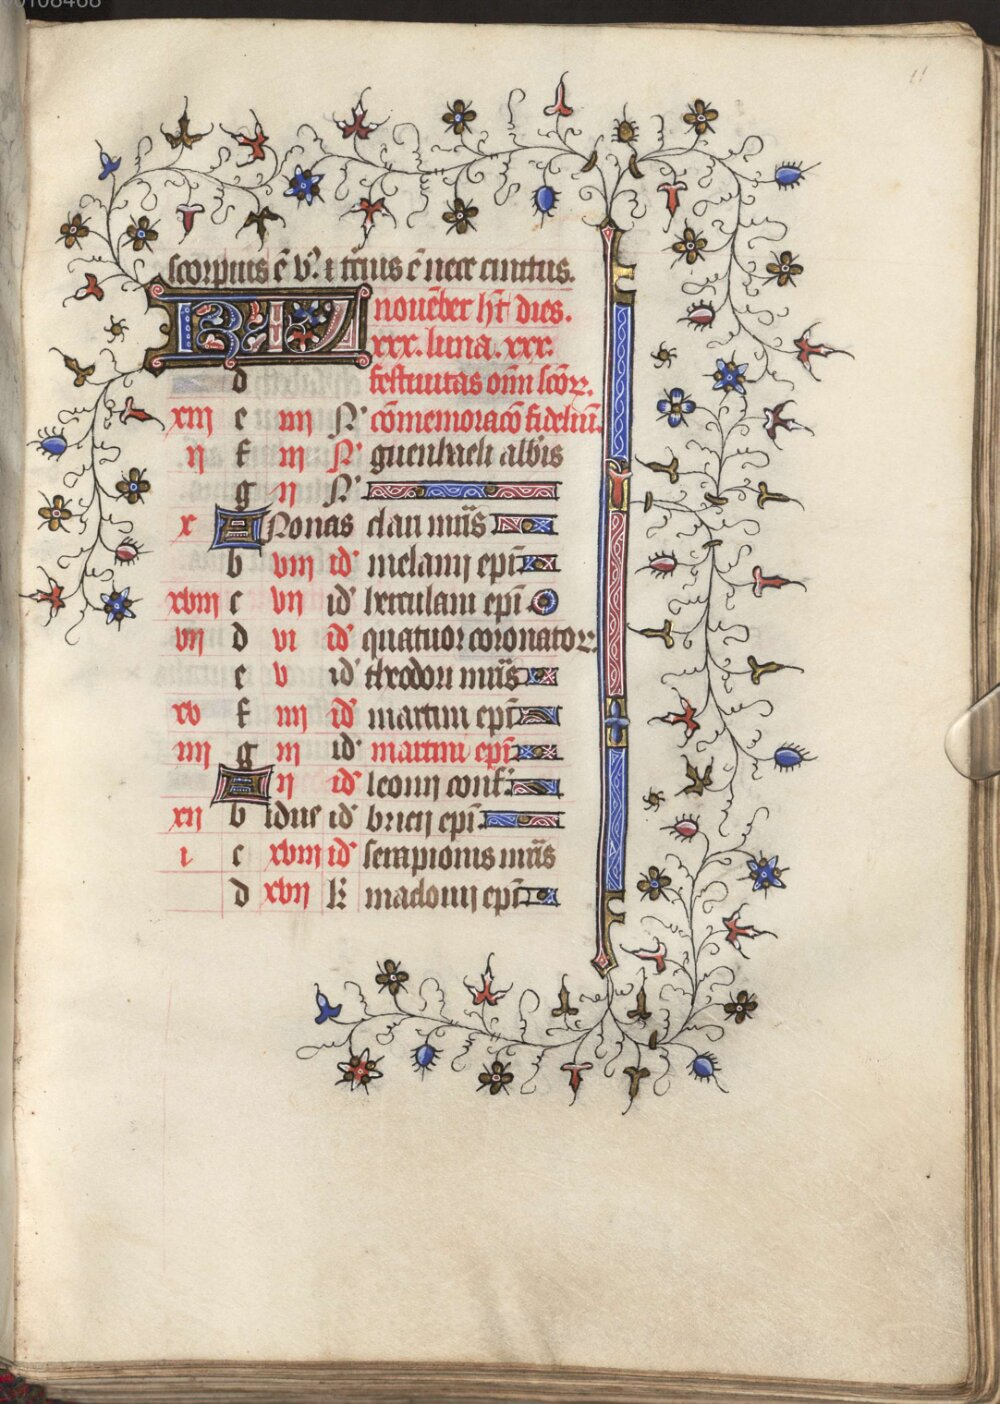 00108468
11
scorpius ē v. ⁊ t̄cius ē nece cinctus.
KL nouēber ht̄ dies.
xxx. luna. xxx.
d festiuitas oīm scōꝝ.
xiij e iiij N' cōmemoracō fideliū.
ij f iij N' guenhaeli albis
g ij N'
x A Nonas clari mr̄is
b viij id' melanij epī
xviij c vij id' herculani epī
vij d vi id' quatuor coronatoꝝ.
e v id' theodori mr̄is
xv f iiij id' martini epī
iiij g iij id' martini epī
A ij id' leonij conf.
xij b idus id' bricij epī
i c xviij id' serapionis mr̄is
d xvij k' madouij epī